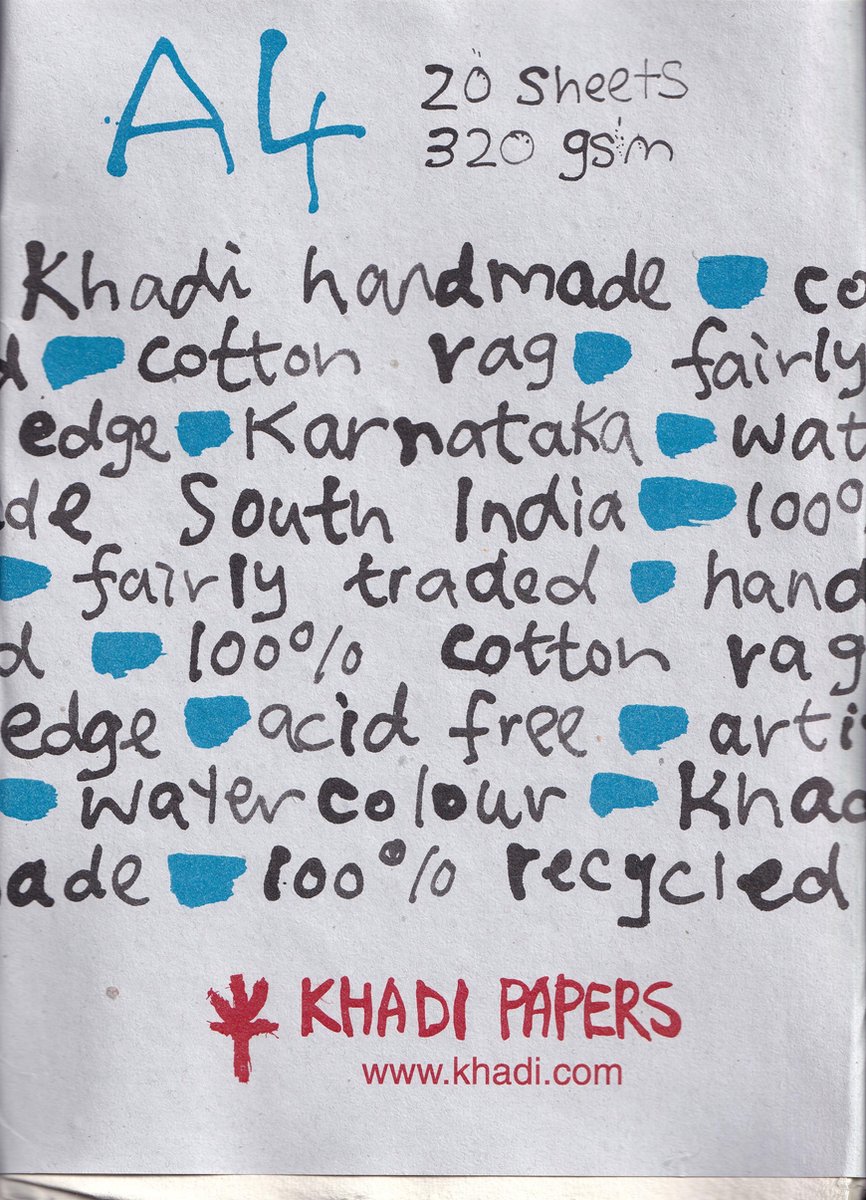 A4
20 sheets
320 gsm
Khadi handmade co
d cotton rag fairly
edge Karnataka wat
de South India 100%
fairly traded hand
d 100% cotton rag
edge acid free arti
watercolour Khad
ade 100% recycled
KHADI PAPERS
www.khadi.com